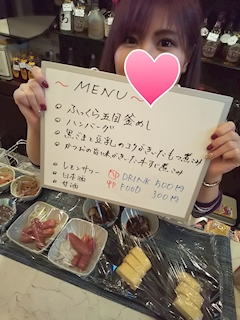 ～MENU～
ふっくら五目釜めし
ハンバーグ
黒ごまと豆乳のコクがきいたもつ煮込み
かつおの旨味がきいた牛すじ煮込み
レモンサワー
日本酒
甘酒
DRINK 600円
FOOD 300円